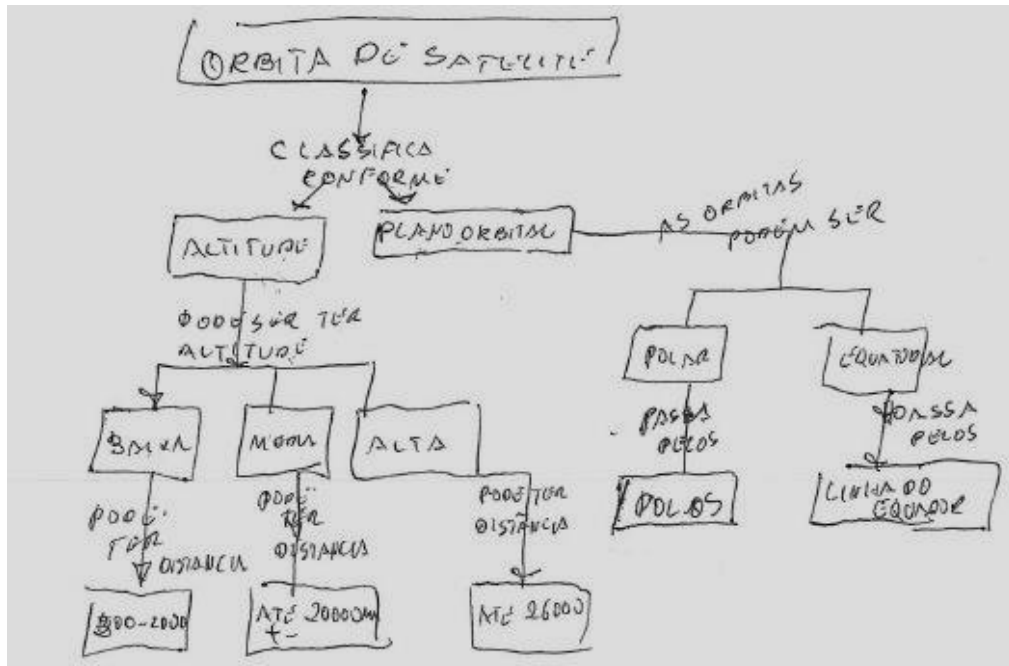 ORBITA DE SATELITE
CLASSIFICA
CONFORME
ALTITUDE
PLANO ORBITAL
AS ORBITAS
PODEM SER
PODE SER TER
ALTITUDE
POLAR
EQUATORIAL
BAIXA
MEDIA
ALTA
PASSA
PELOS
PASSA
PELOS
POLOS
LINHA DO
EQUADOR
PODE
TER
DISTANCIA
PODE
TER
DISTÂNCIA
PODE TER
DISTÂNCIA
-2000
ATÉ 20000km
+-
ATÉ 26000